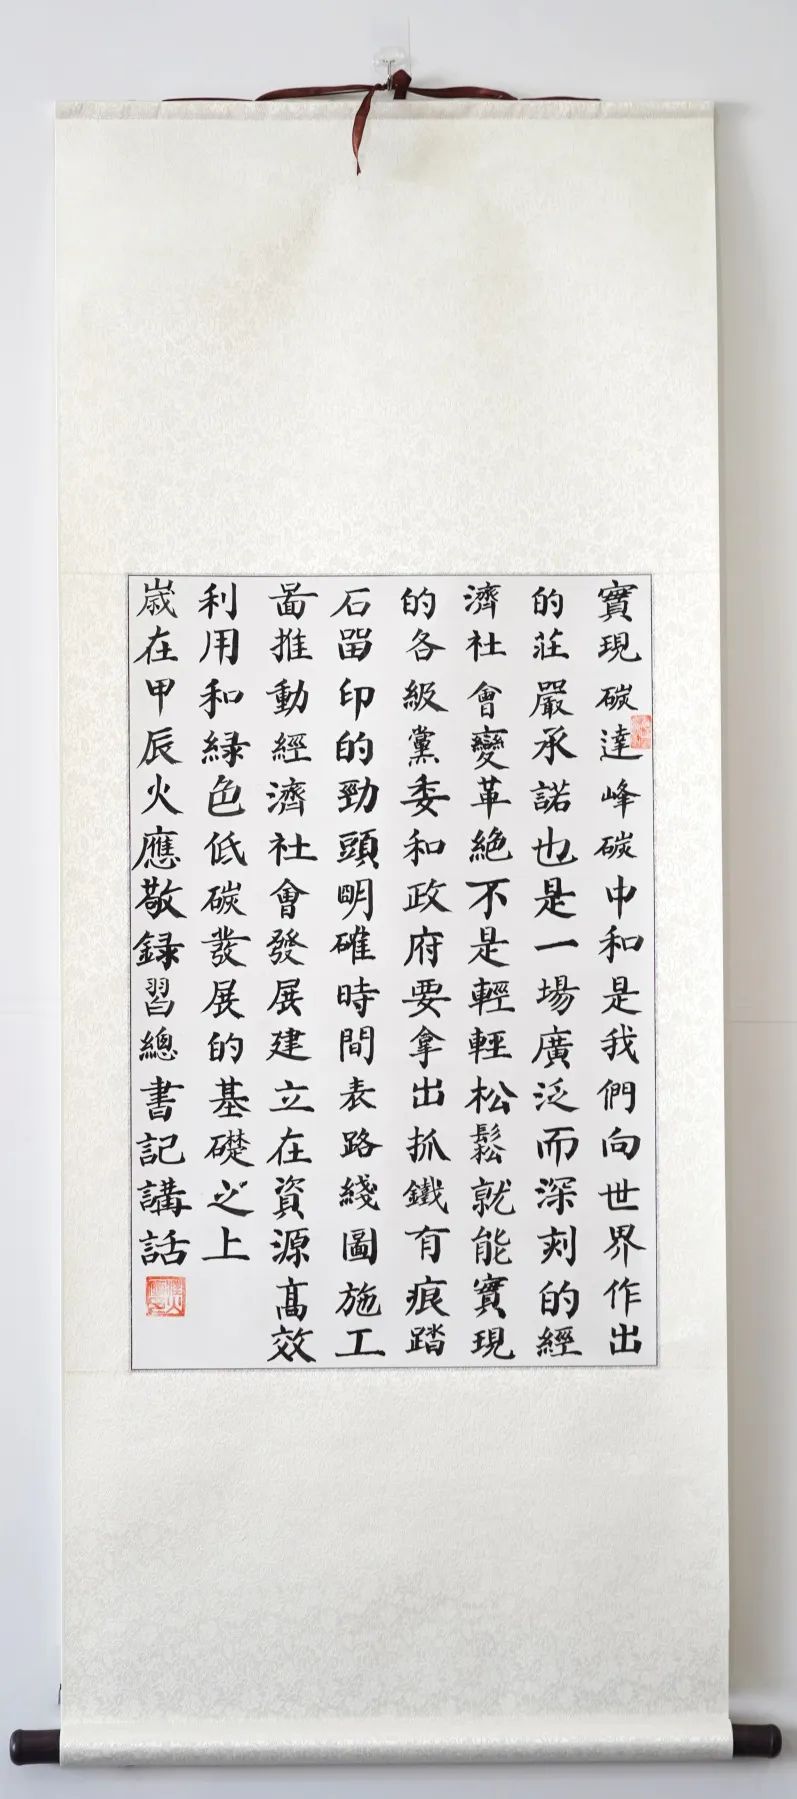 實現碳達峰碳中和是我們向世界作出
的莊嚴承諾也是一場廣泛而深刻的經
濟社會變革絶不是輕輕松鬆就能實現
的各級黨委和政府要拿出抓鐵有痕踏
石畱印的勁頭明確時間表路綫圖施工
啚推動經濟社會發展建立在資源高效
利用和緑色低碳發展的基礎之上
歲在甲辰火應敬録習總書記講話